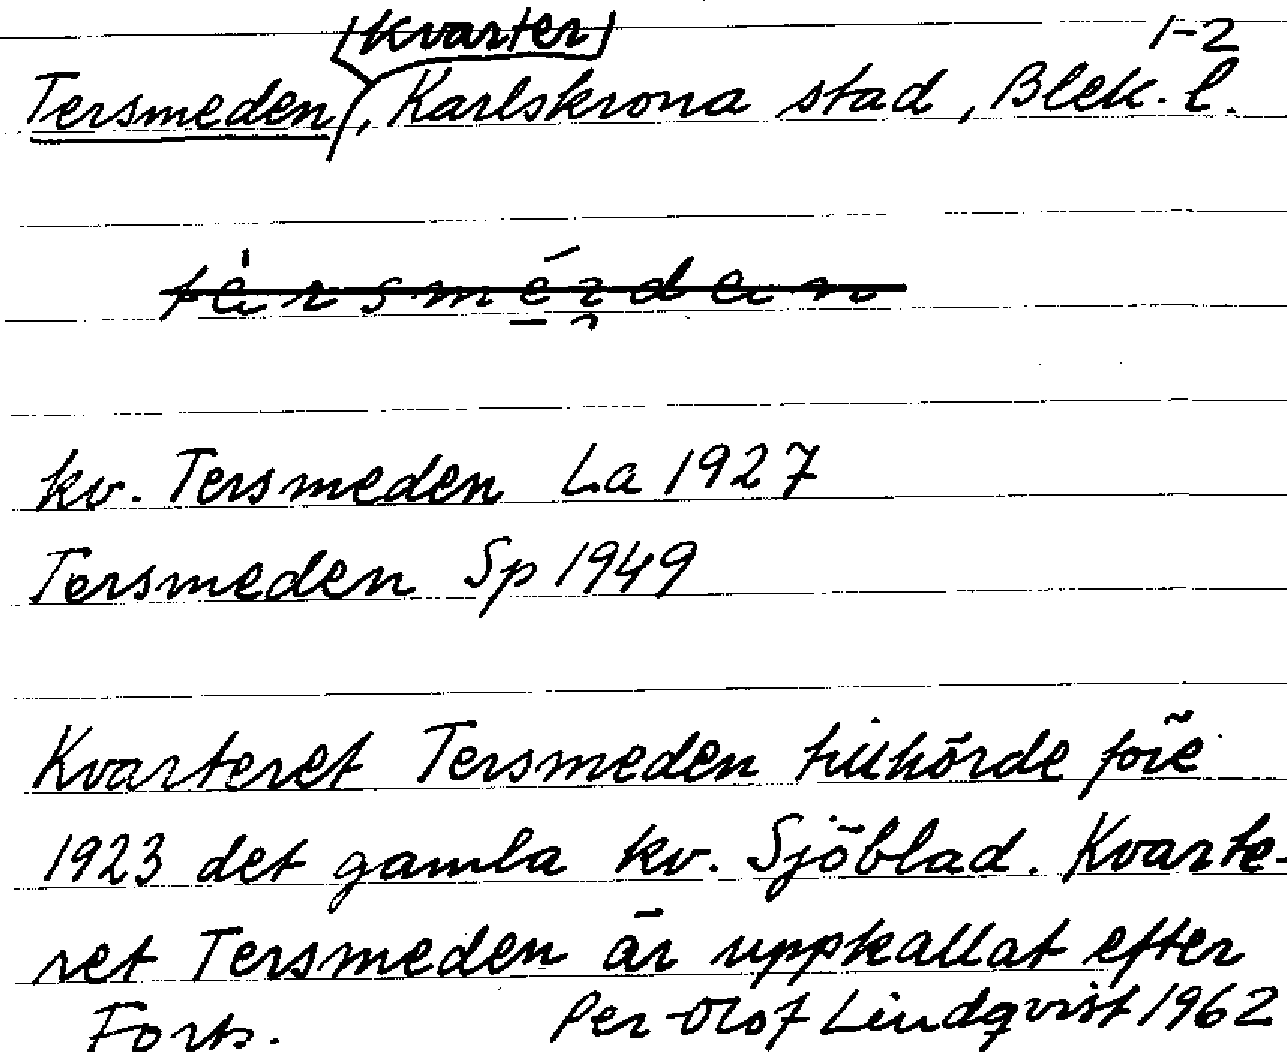 [Kvarter] 1-2
Tersmeden, Karlskrona stad, Blek. l.
kv. Tersmeden La 1927
Tersmeden Sp 1949
Kvarteret Tersmeden tillhörde före
1923 det gamla kv. Sjöblad. Kvarte-
ret Tersmeden är uppkallat efter
Forts. Per-Olof Lindqvist 1962